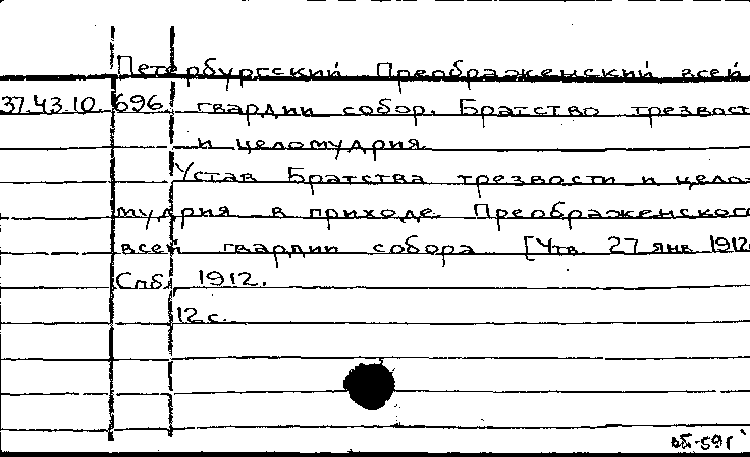 Петербургский Преображенский всей
37.43.10 696 гвардии собор. Братство трезвост
и целомудрия.
Устав Братства трезвости и цело-
мудрия в приходе Преображенского
всей гвардии собора [Утв. 27 янв 1912
Спб, 1912.
12 с.